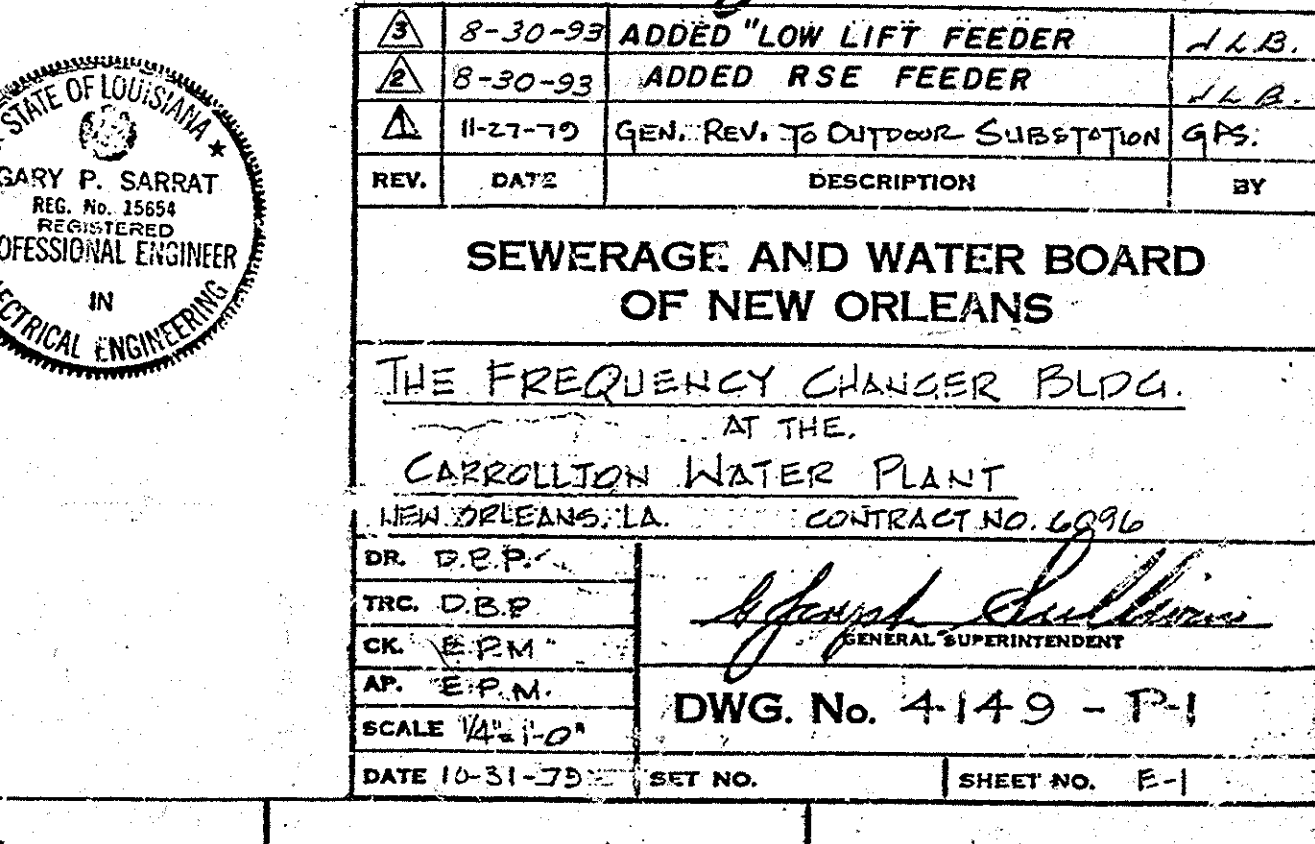 STATE OF LOUISIANA
GARY P. SARRAT
REG. No. 15654
REGISTERED
PROFESSIONAL ENGINEER
IN
ELECTRICAL ENGINEERING
3 8-30-93 ADDED "LOW LIFT FEEDER J L B.
2 8-30-93 ADDED RSE FEEDER J L B.
1 11-27-79 GEN. REV. TO OUTDOOR SUBSTATION GPS.
REV. DATE DESCRIPTION BY
SEWERAGE AND WATER BOARD
OF NEW ORLEANS
THE FREQUENCY CHANGER BLDG.
AT THE.
CARROLLTON WATER PLANT
NEW ORLEANS, LA. CONTRACT NO. 6096
DR. D.B.P.
TRC. D.B.P.
CK. E.P.M.
AP. E.P.M.
SCALE 1/4"=1'-0"
GENERAL SUPERINTENDENT
DWG. No. 4149-P-1
DATE 10-31-75 SET NO. SHEET NO. E-1